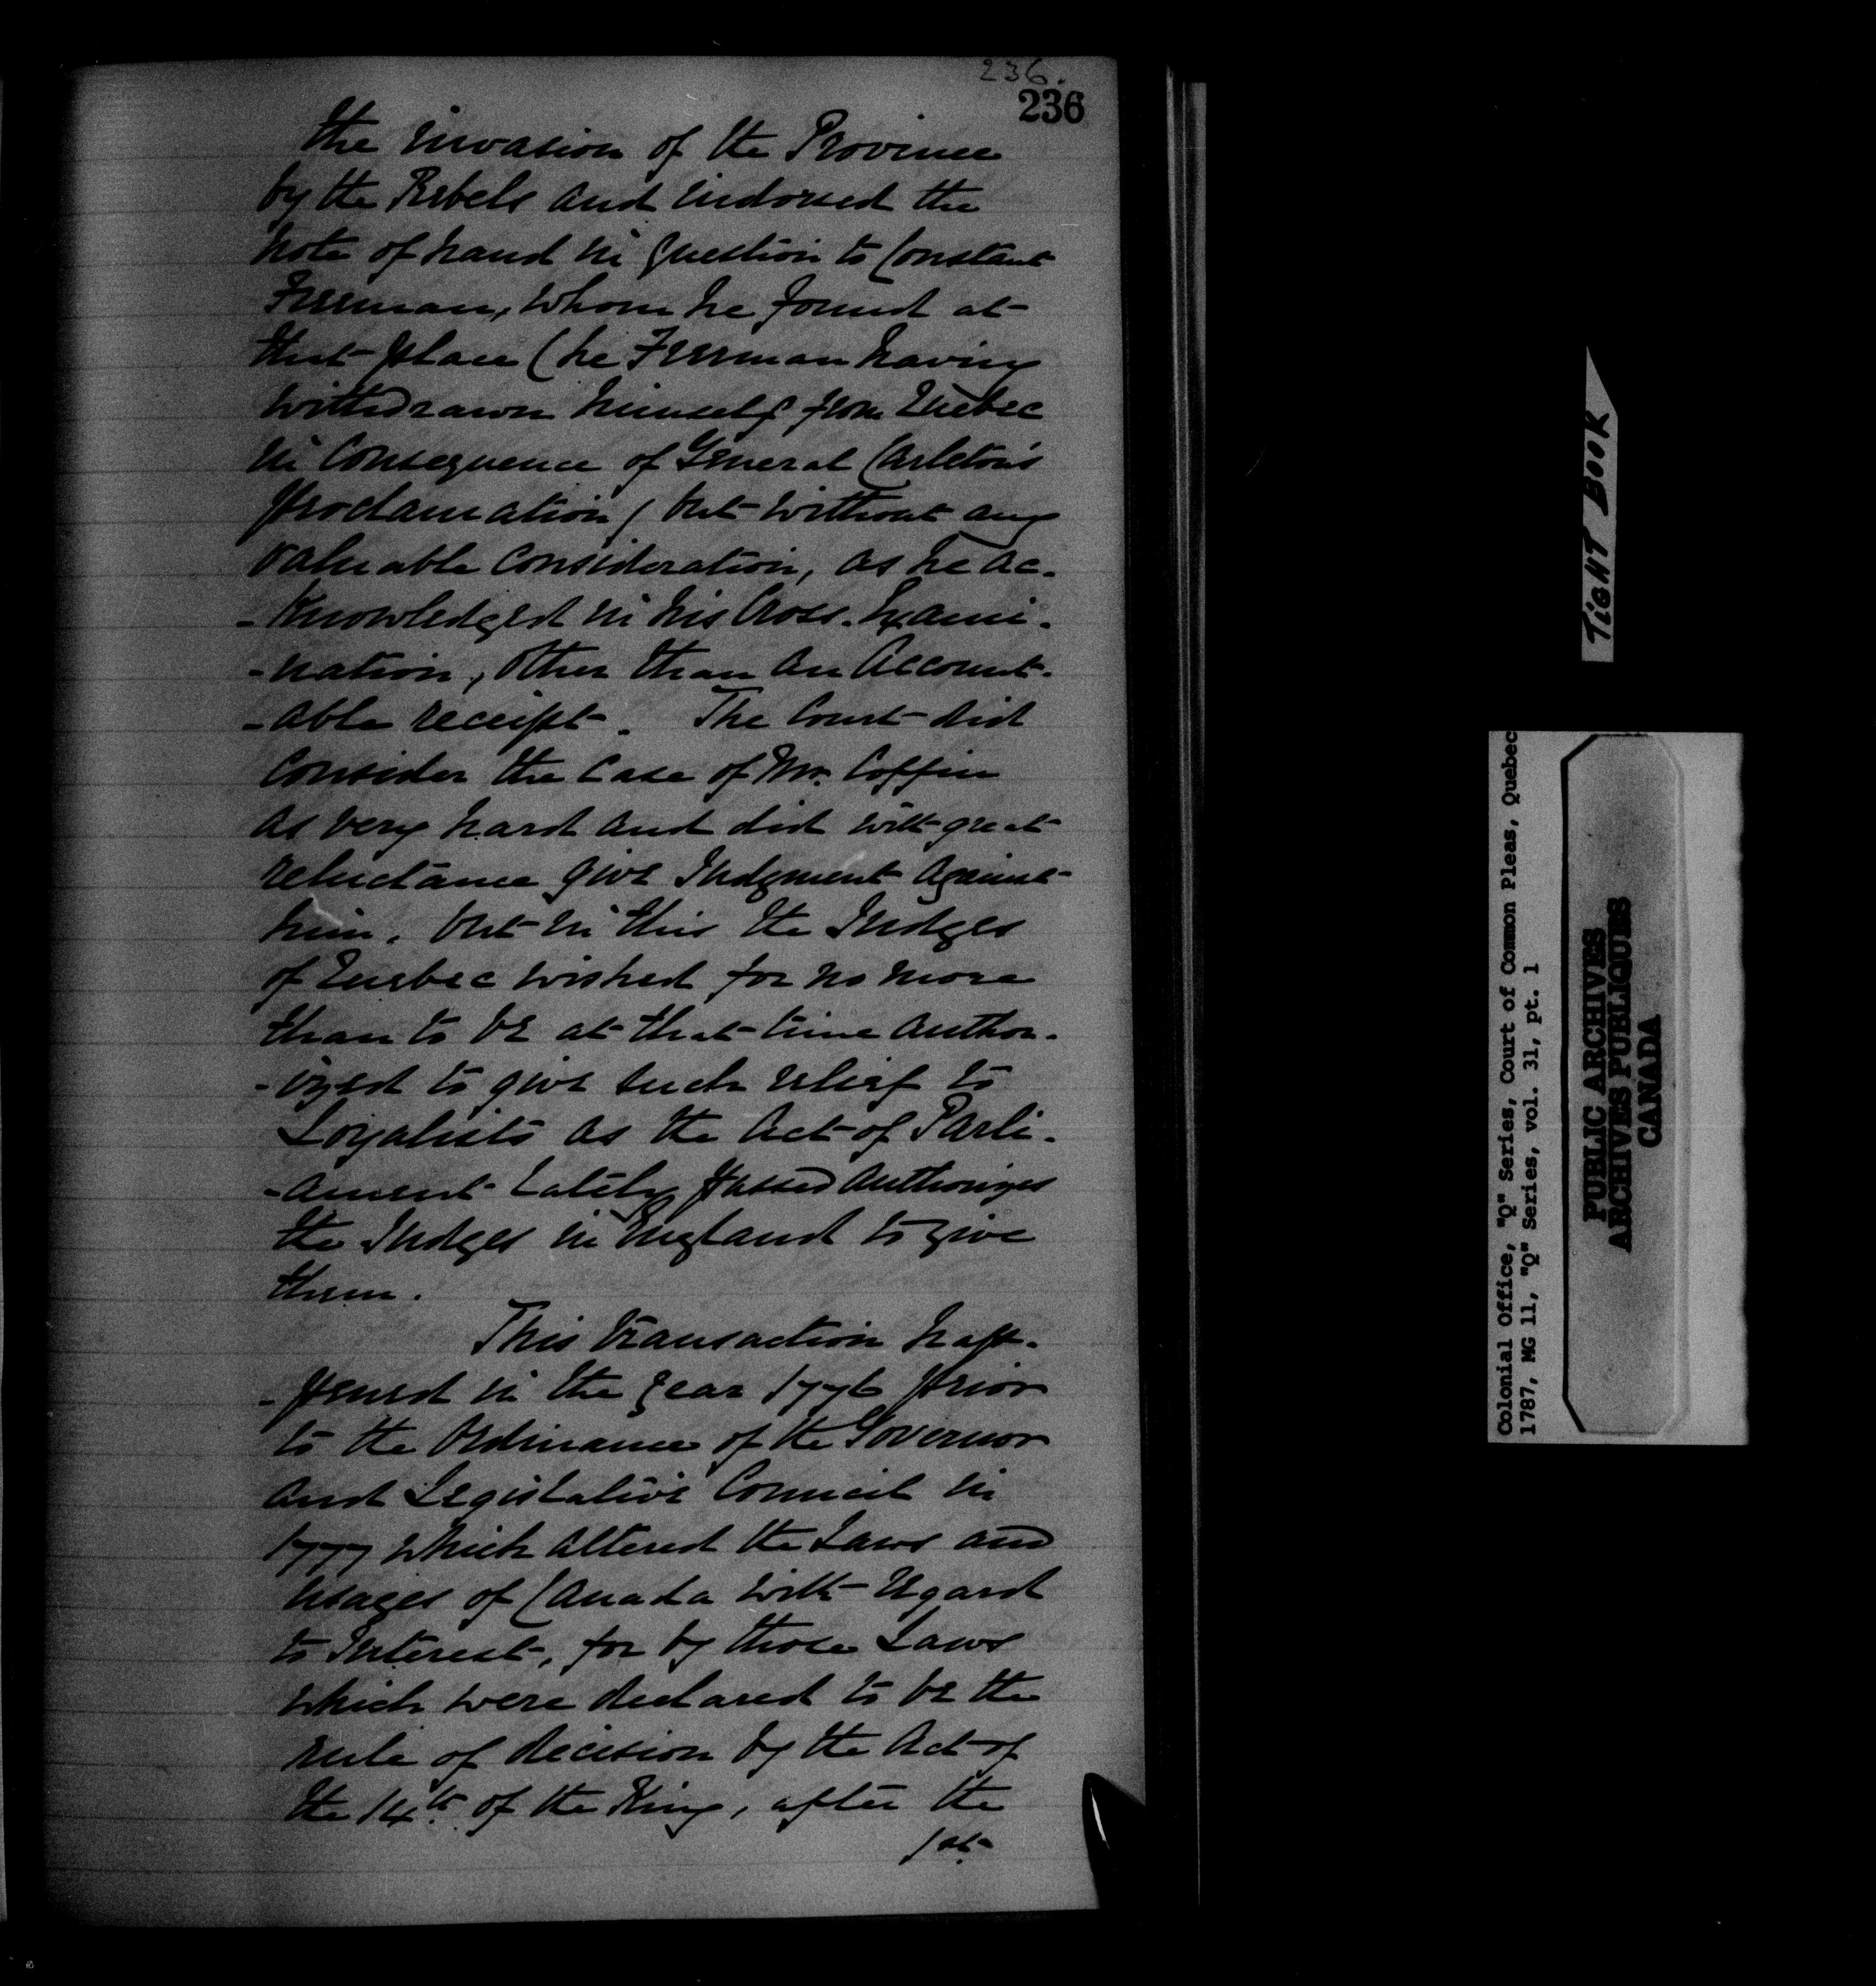 236.
236
the invasion of the Province
by the Rebels and indorsed the
note of hand in question to Constant
Freeman, whom he found at
that place (he Freeman having
withdrawn himself from Quebec
in Consequence of General Carleton's
proclamation) but without any
valuable consideration, as he ac-
-knowledged in his Cross-Exami-
-nation, other than an Account-
-able receipt. The Court did
Consider the Case of Mr. Coffin
as very hard and did with great
reluctance give Judgment against
him. but in this the Judges
of Quebec wished for no more
than to be at that time author-
-ized to give such relief to
Loyalists as the Act of Parli-
-ament lately passed authorizes
the Judges in England to give
them.
This transaction hap-
-pened in the year 1776 prior
to the Ordinance of the Governor
and Legislative Council in
1777 which altered the Laws and
usages of Canada with regard
to Interest, for by those Laws
which were declared to be the
rule of decision by the Act of
the 14th. of the King, after the
1st.
TIGHT BOOK
Colonial Office, "Q" Series, Court of Common Pleas, Quebec
1787, MG 11, "Q" Series, vol. 31, pt. 1
PUBLIC ARCHIVES
ARCHIVES PUBLIQUES
CANADA